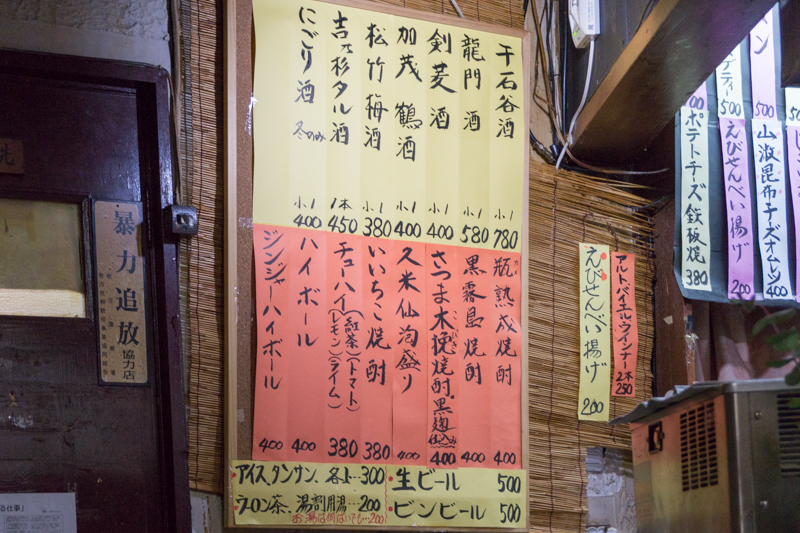 千石谷酒 小1 780
龍門酒 小1 580
剣菱酒 小1 400
加茂鶴酒 小1 400
松竹梅酒 小1 380
吉乃杉タル酒 1本 450
にごり酒 冬のみ 小1 400
瓶熟成焼酎 400
黒霧島焼酎 400
さつま木挽焼酎.黒麹仕込み 400
久米仙泡盛り 400
いいちこ焼酎 380
チューハイ(紅茶)(トマト)(レモン)(ライム) 380
ハイボール 400
ジンジャーハイボール 400
アイス、タンサン、各上…300
ウーロン茶、湯割用湯…200
お湯は何ばいでも…200
生ビール 500
ビンビール 500
アルトバイエルンウインナー 2本 250
えびせんべい揚げ 200
500
山激昆布チーズオムレツ 400
えびせんべい揚げ 200
ポテトチーズ鉄板焼 380
暴力追放
協力店